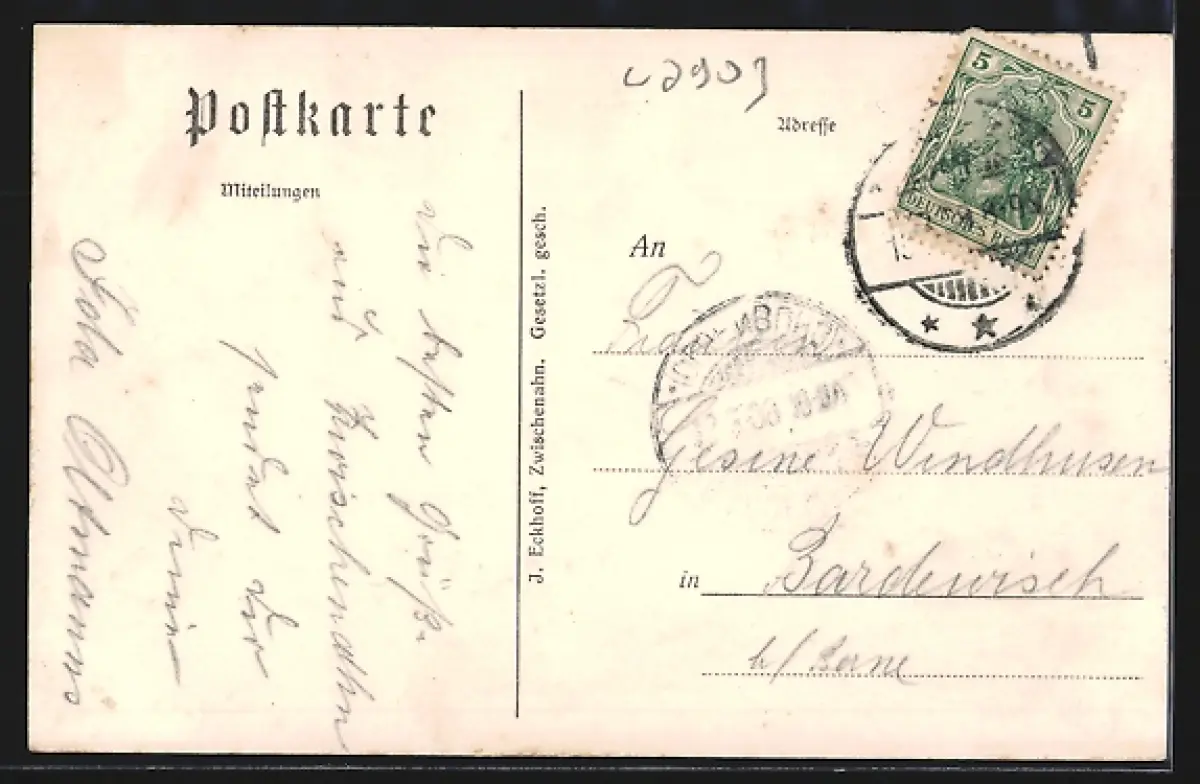 Postkarte
Mitteilungen
Die besten Grüße
aus Zwischenahn
sendet Dir
Deine
Johanne
J. Eckhoff, Zwischenahn. Gesetzl. gesch.
Adresse
5
5
DEUTSCHES REICH
An
Gesine Windhusen
in Bardewisch
b/ Berne